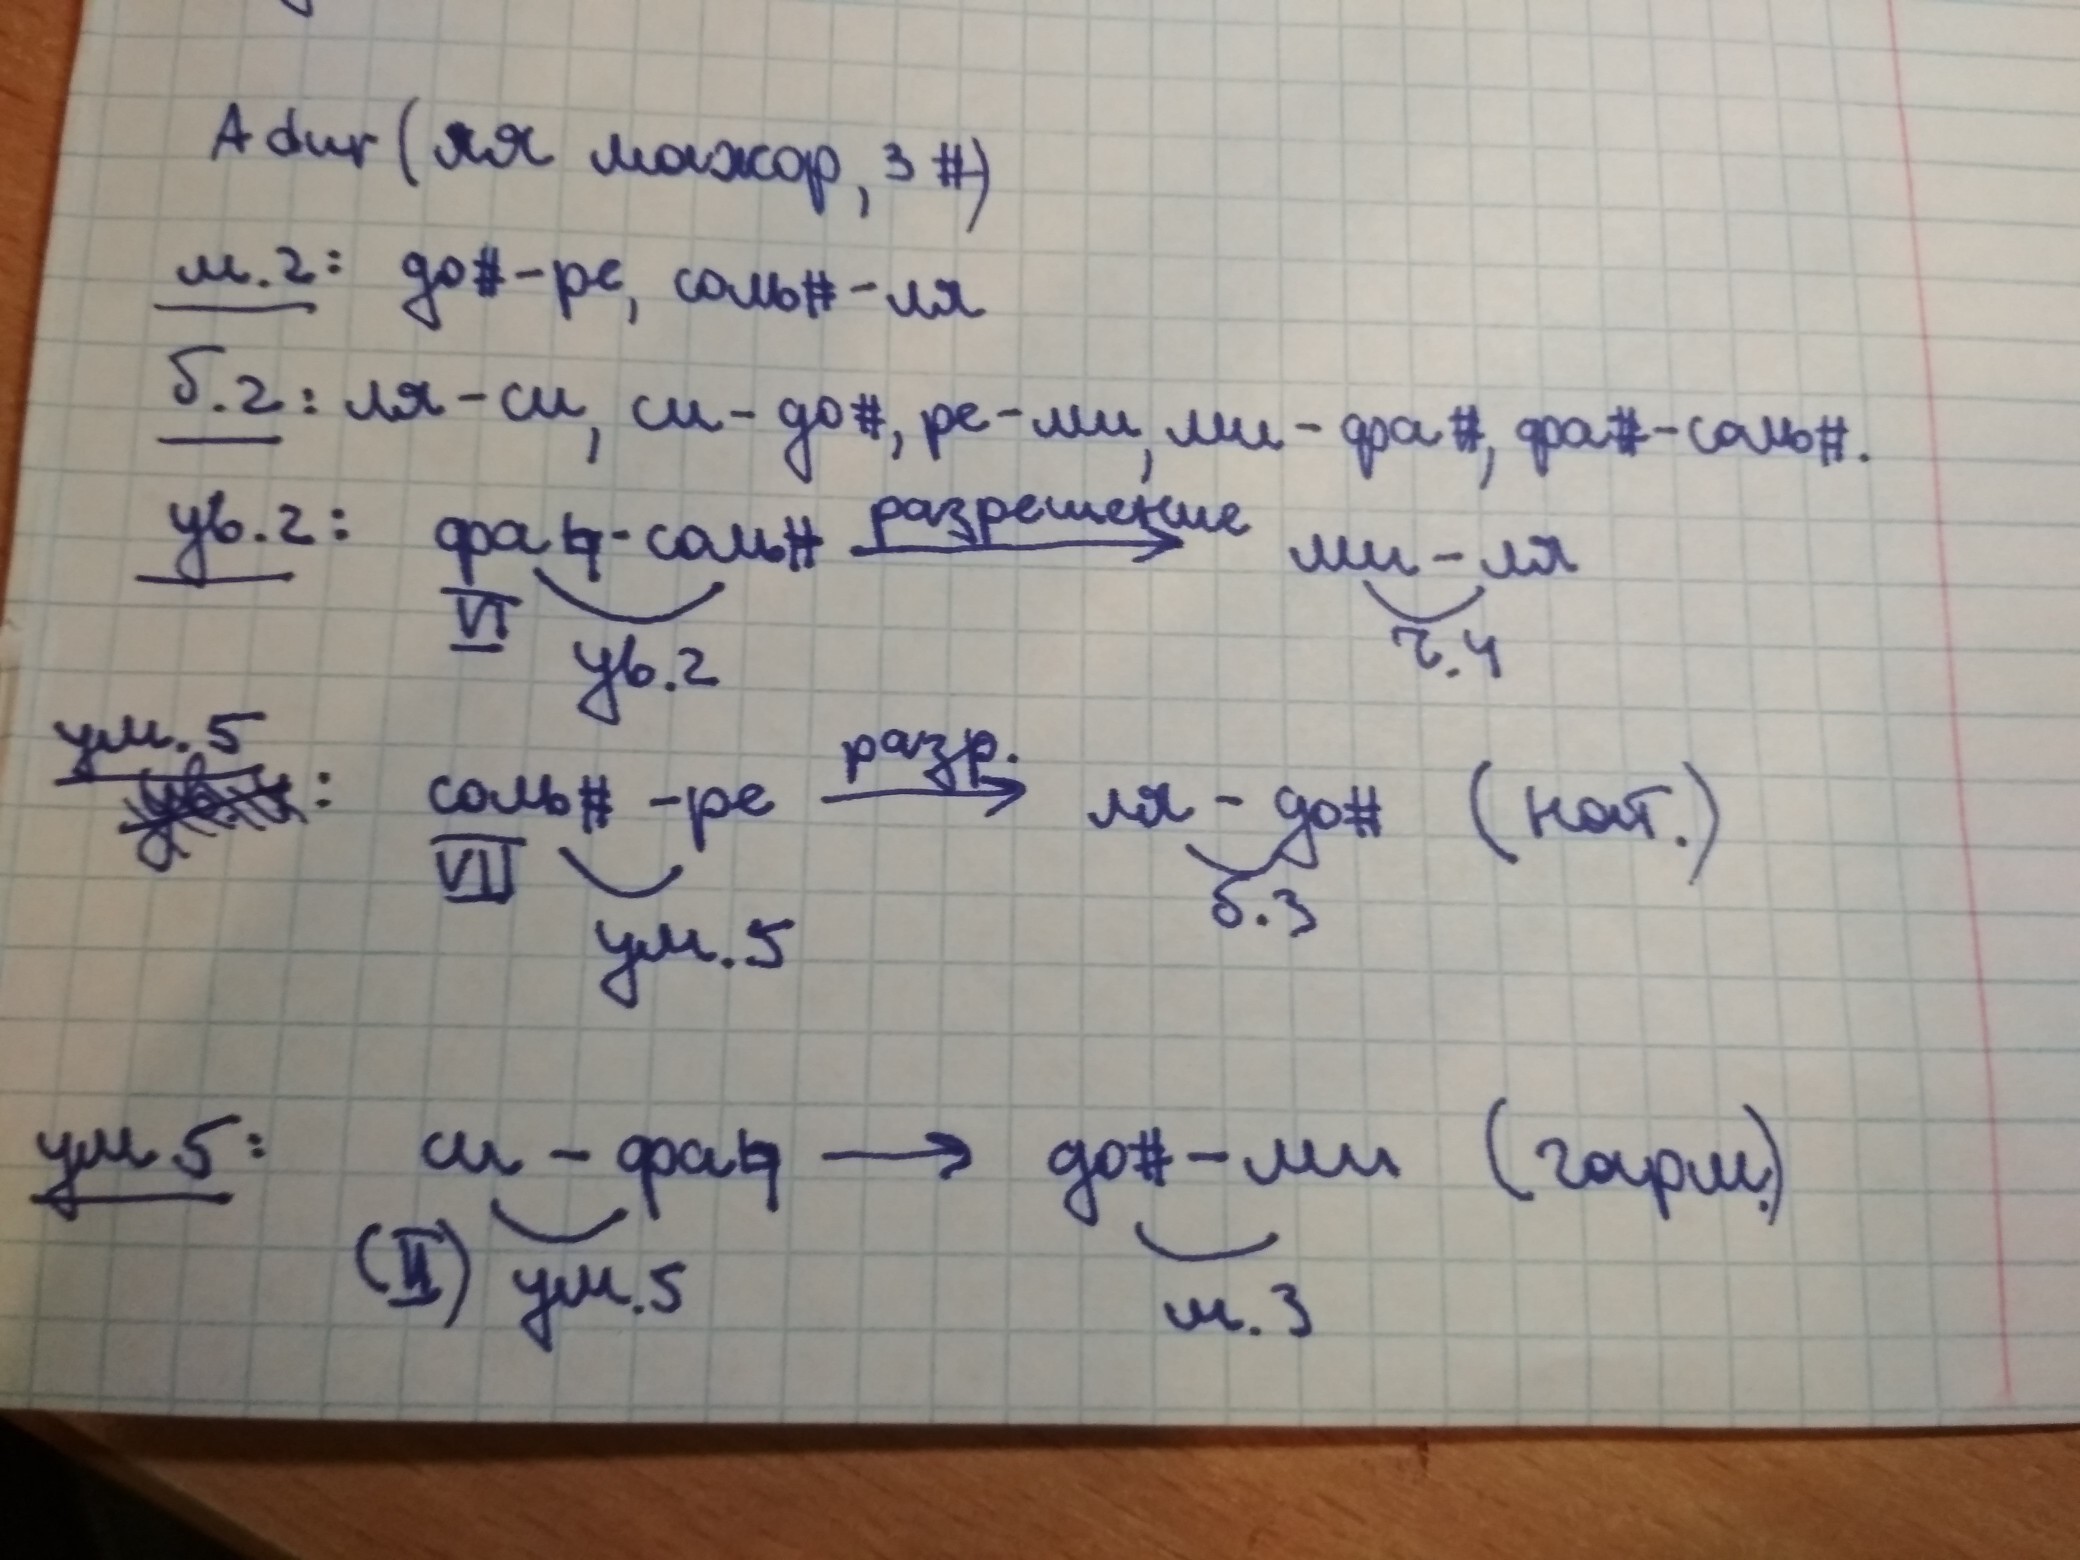 A dur (ля мажор, 3 #)
м.2: до# - ре, соль# - ля
б.2: ля - си, си - до#, ре - ми, ми - фа#, фа# - соль#.
ув.2: фа♮ - соль# разрешение ми - ля
VI ув.2 ч.4
ум.5: соль# - ре разр. ля - до# (нат.)
VII ум.5 б.3
ум 5: си - фа♮ → до# - ми (гарм.)
(II) ум.5 м.3